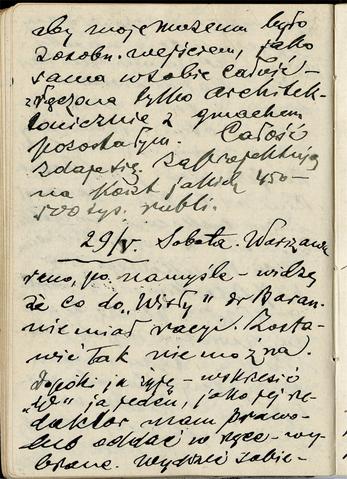 aby moje muzeum było
z osobn. wejściem, jako
sama w sobie całość –
złączona tylko architek-
tonicznie z gmachem
pozostałym. Całość
zdaje się zaprojektują
na koszt jakich 450–
500 tys. rubli.
29/V. Sobota. Warszawa
rano, po namyśle – widzę
że co do „Wisły” dr Baran.
nie miał racyi. Zosta-
wić tak nie można.
Dopóki ja żyję – wskrzesić
„W” ja jeden, jako jej re-
daktor mam prawo –
lub oddać w ręce – wy-
brane. Wydrzeć sobie –